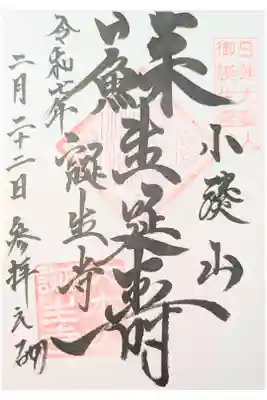 日蓮大聖人
御誕生
小湊山
蘇生延寿
誕生寺
令和年
二月二十二日 参拝之砌